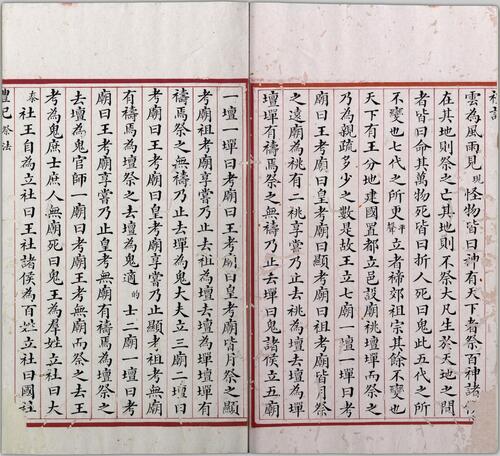 禮記
雲為風雨見現怪物皆曰神有天下者祭百神諸侯
在其地則祭之亡其地則不祭大凡生於天地之間
者皆曰命其萬物死皆曰折人死曰鬼此五代之所
不變也七代之所更平聲立者禘郊祖宗其餘不變也
天下有王分地建國置都立邑設廟祧壇墠而祭之
乃為親疏多少之數是故王立七廟一壇一墠曰考
廟曰王考廟曰皇考廟曰顯考廟曰祖考廟皆月祭
之遠廟為祧有二祧享嘗乃止去祧為壇去壇為墠
壇墠有禱焉祭之無禱乃止去墠曰鬼諸侯立五廟
一壇一墠曰考廟曰王考廟曰皇考廟皆月祭之顯
考廟祖考廟享嘗乃止去祖為壇去壇為墠壇墠有
禱焉祭之無禱乃止去墠為鬼大夫立三廟二壇曰
考廟曰王考廟曰皇考廟享嘗乃止顯考祖考無廟
有禱焉為壇祭之去壇為鬼適的士二廟一壇曰考
廟曰王考廟享嘗乃止皇考無廟有禱焉為壇祭之
去壇為鬼官師一廟曰考廟王考無廟而祭之去王
考為鬼庶士庶人無廟死曰鬼王為羣姓立社曰大
泰社王自為立社曰王社諸侯為百姓立社曰國社
禮記 祭法